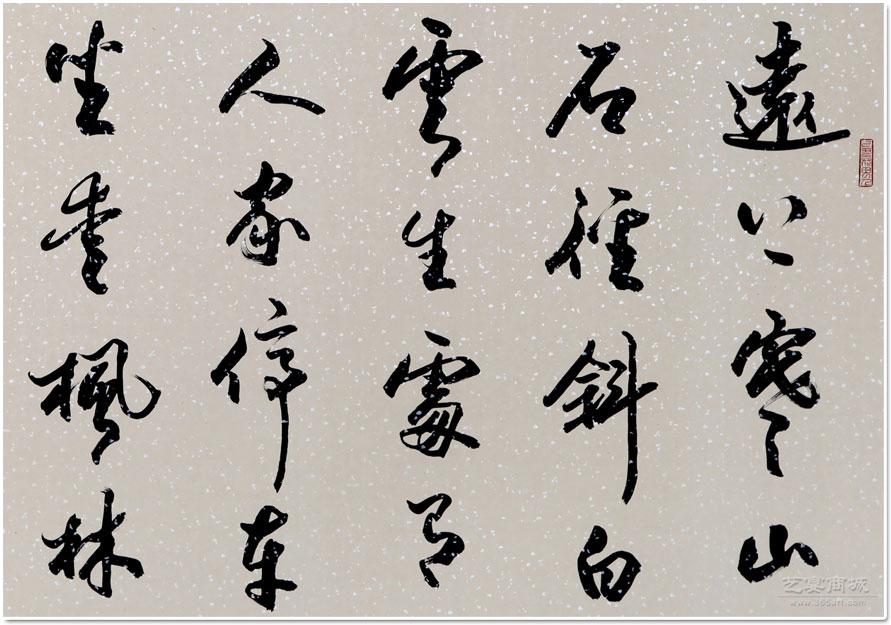 遠上寒山
石徑斜白
雲生處有
人家停車
坐愛楓林
商城
www.365art.com